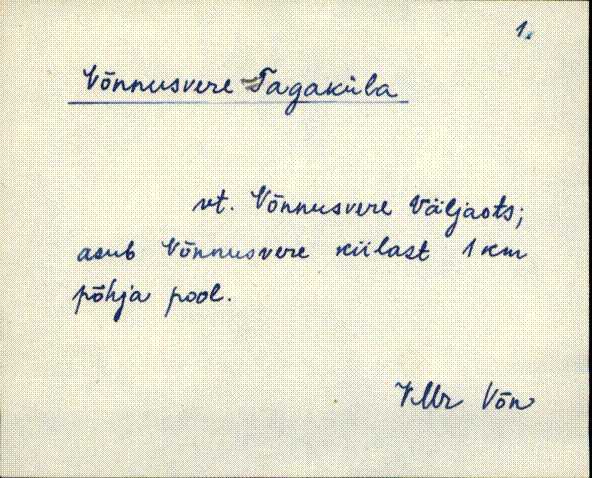 1.
Võnnusvere Tagaküla
vt. Võnnusvere Väljaots;
asub Võnnusvere külast 1 km
põhja pool.
VMr Võn